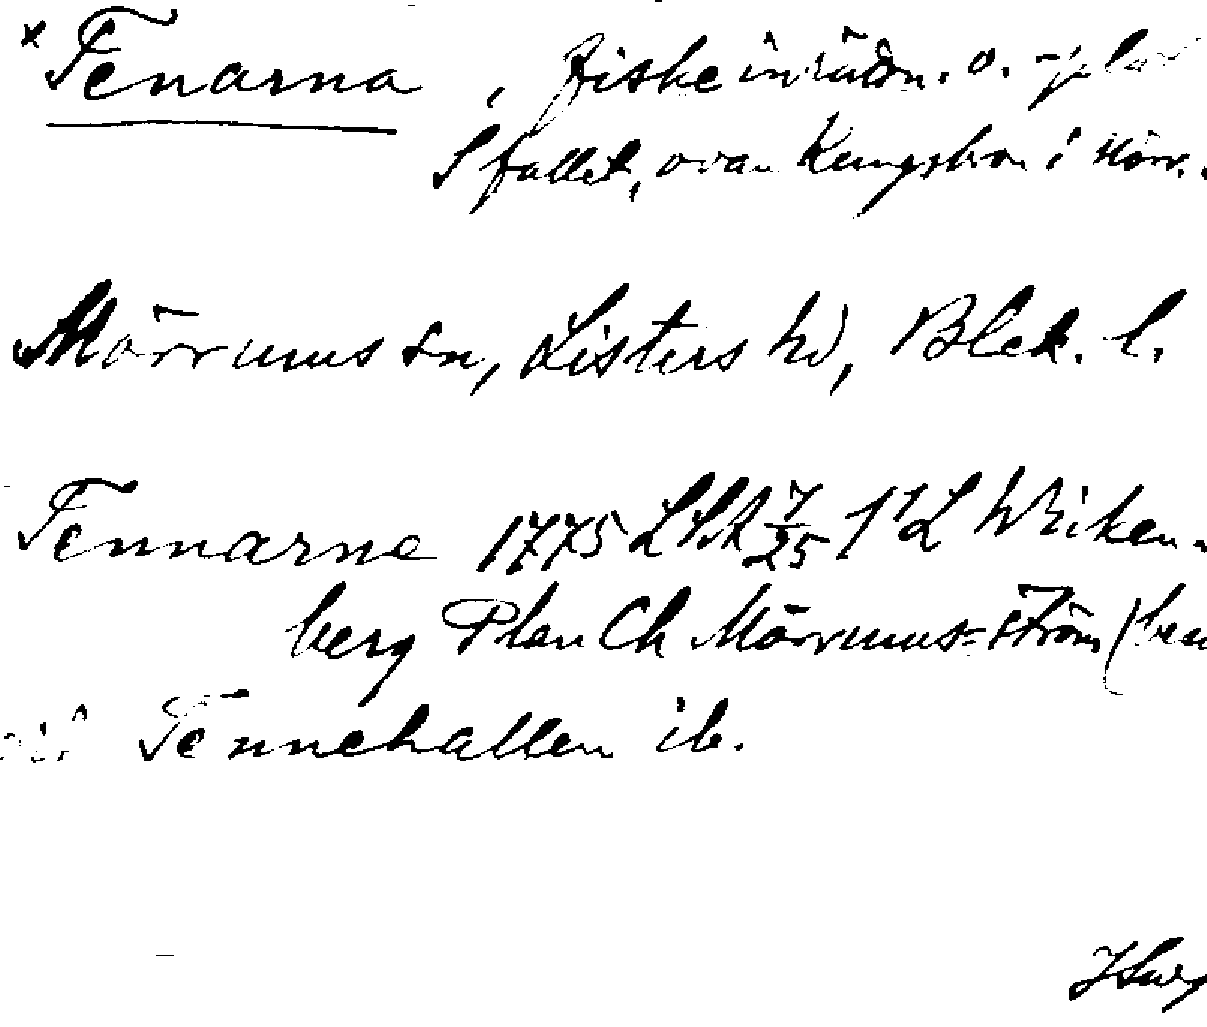 * Tenarna, fiskeinrädn. o. -plat
S fallet, ovan Kungsbron i Mörr.
Mörrums sn, Listers hd, Blek. l.
Tennarne 1775 LSA 7/25 1:1 L Wiken-
berg Plan Ch Mörrums-ström (ben
vid Tennehallen ib.